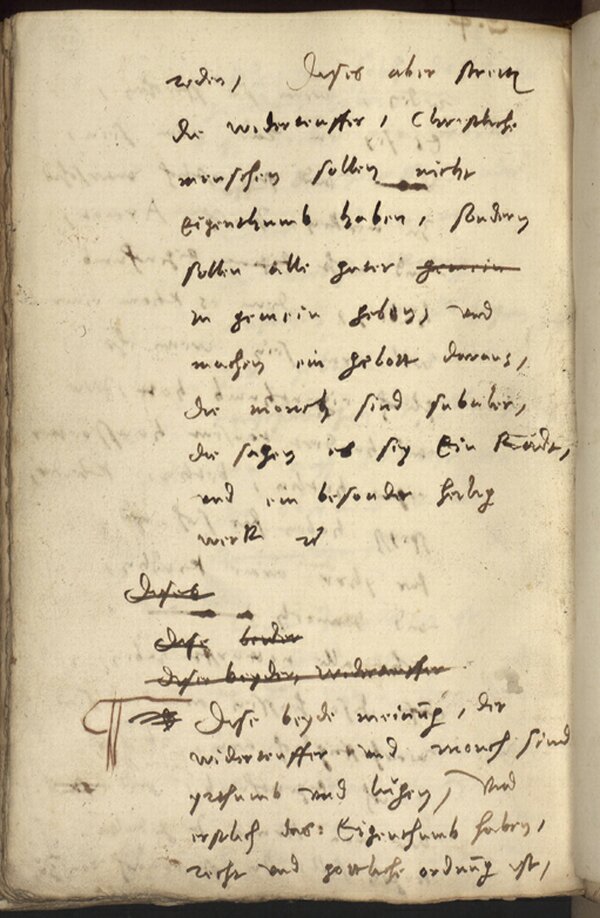 reden, Dises aber streitz
die widerteuffer, Christliche
menschen sollen nicht
Eigenthumb haben, sondern
sollen alle guter gemein
in gemein geben, und
machen ein gebott daraus,
die monch sind subtiler,
die sagen es sey Ein Radt,
und ein besonder heilig
werk
Dises
Dise beider
Dise beyden widerteuffer
Dise beyde meinung, der
widerteuffer und monch sind
yrthumb und lugen, Und
erstlich das: Eigenthumb haben,
recht und gottliche ordnung ist,